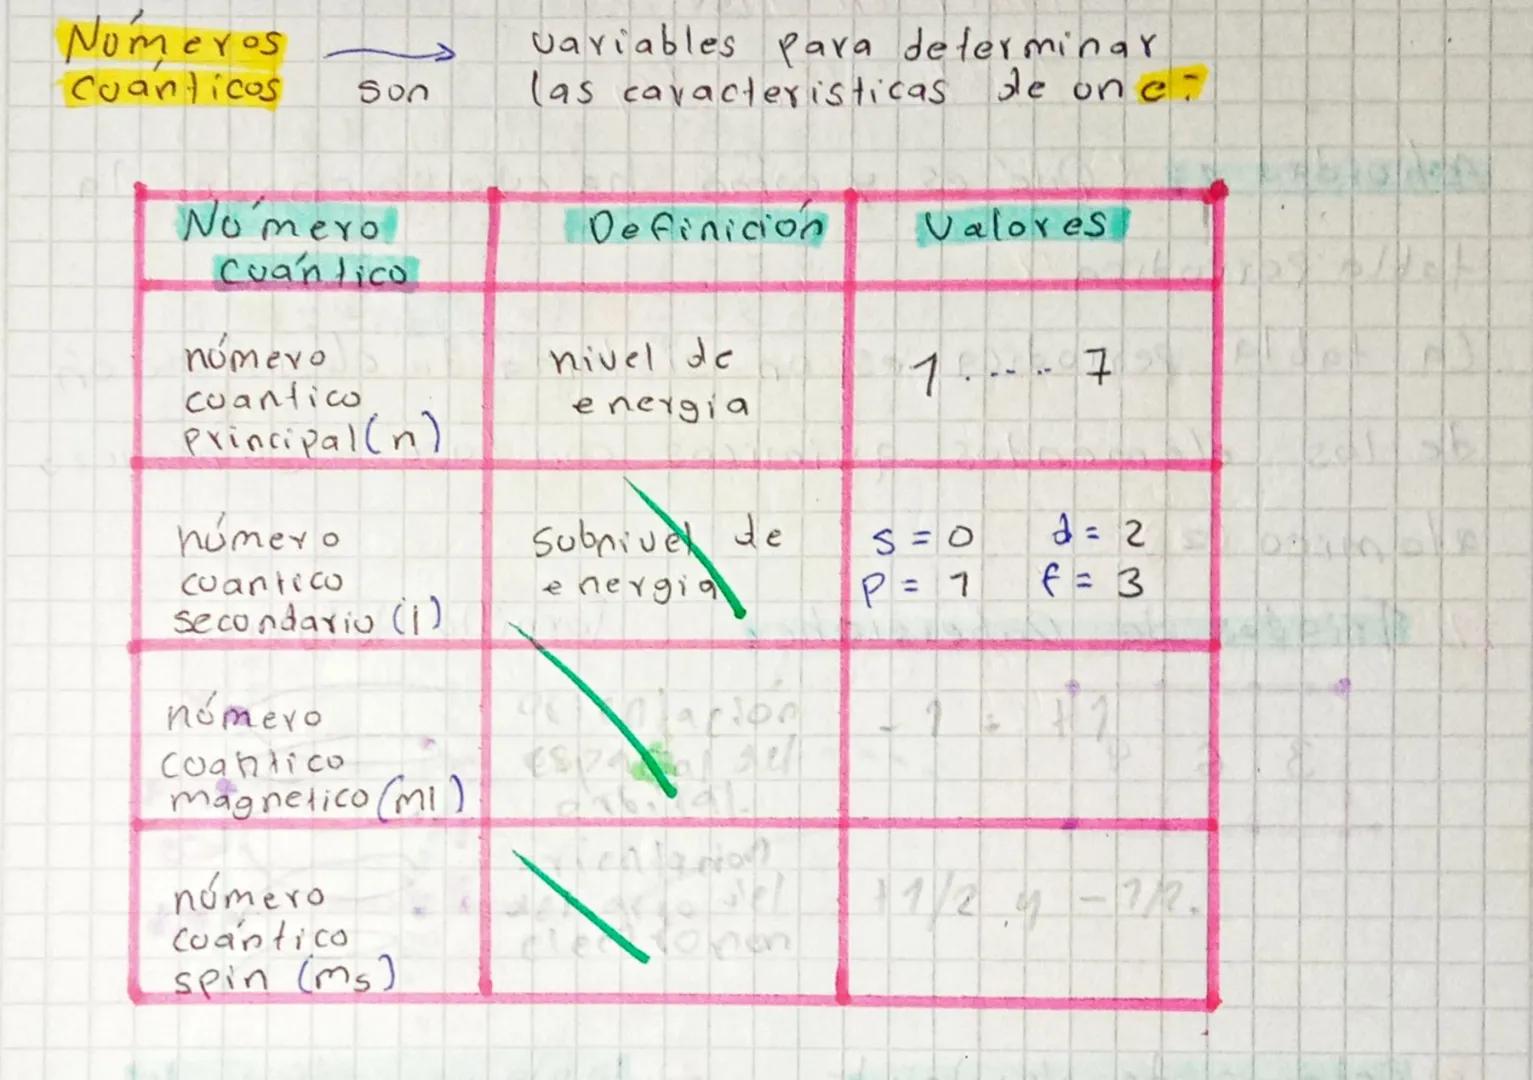 Números
Cuánticos
son
variables para determinar
las caracteristicas de un e-
Número
Cuántico
Definición
Valores
número
cuantico
principal (n)
nivel de
energia
1 ..... 7
número
cuantico
secundario (l)
Subnivel de
energia
s = 0 d = 2
p = 1 f = 3
número
cuantico
magnetico (ml)
espacial del
orbital.
- 1 +1
número
cuántico
spin (ms)
+1/2 y - 1/2.